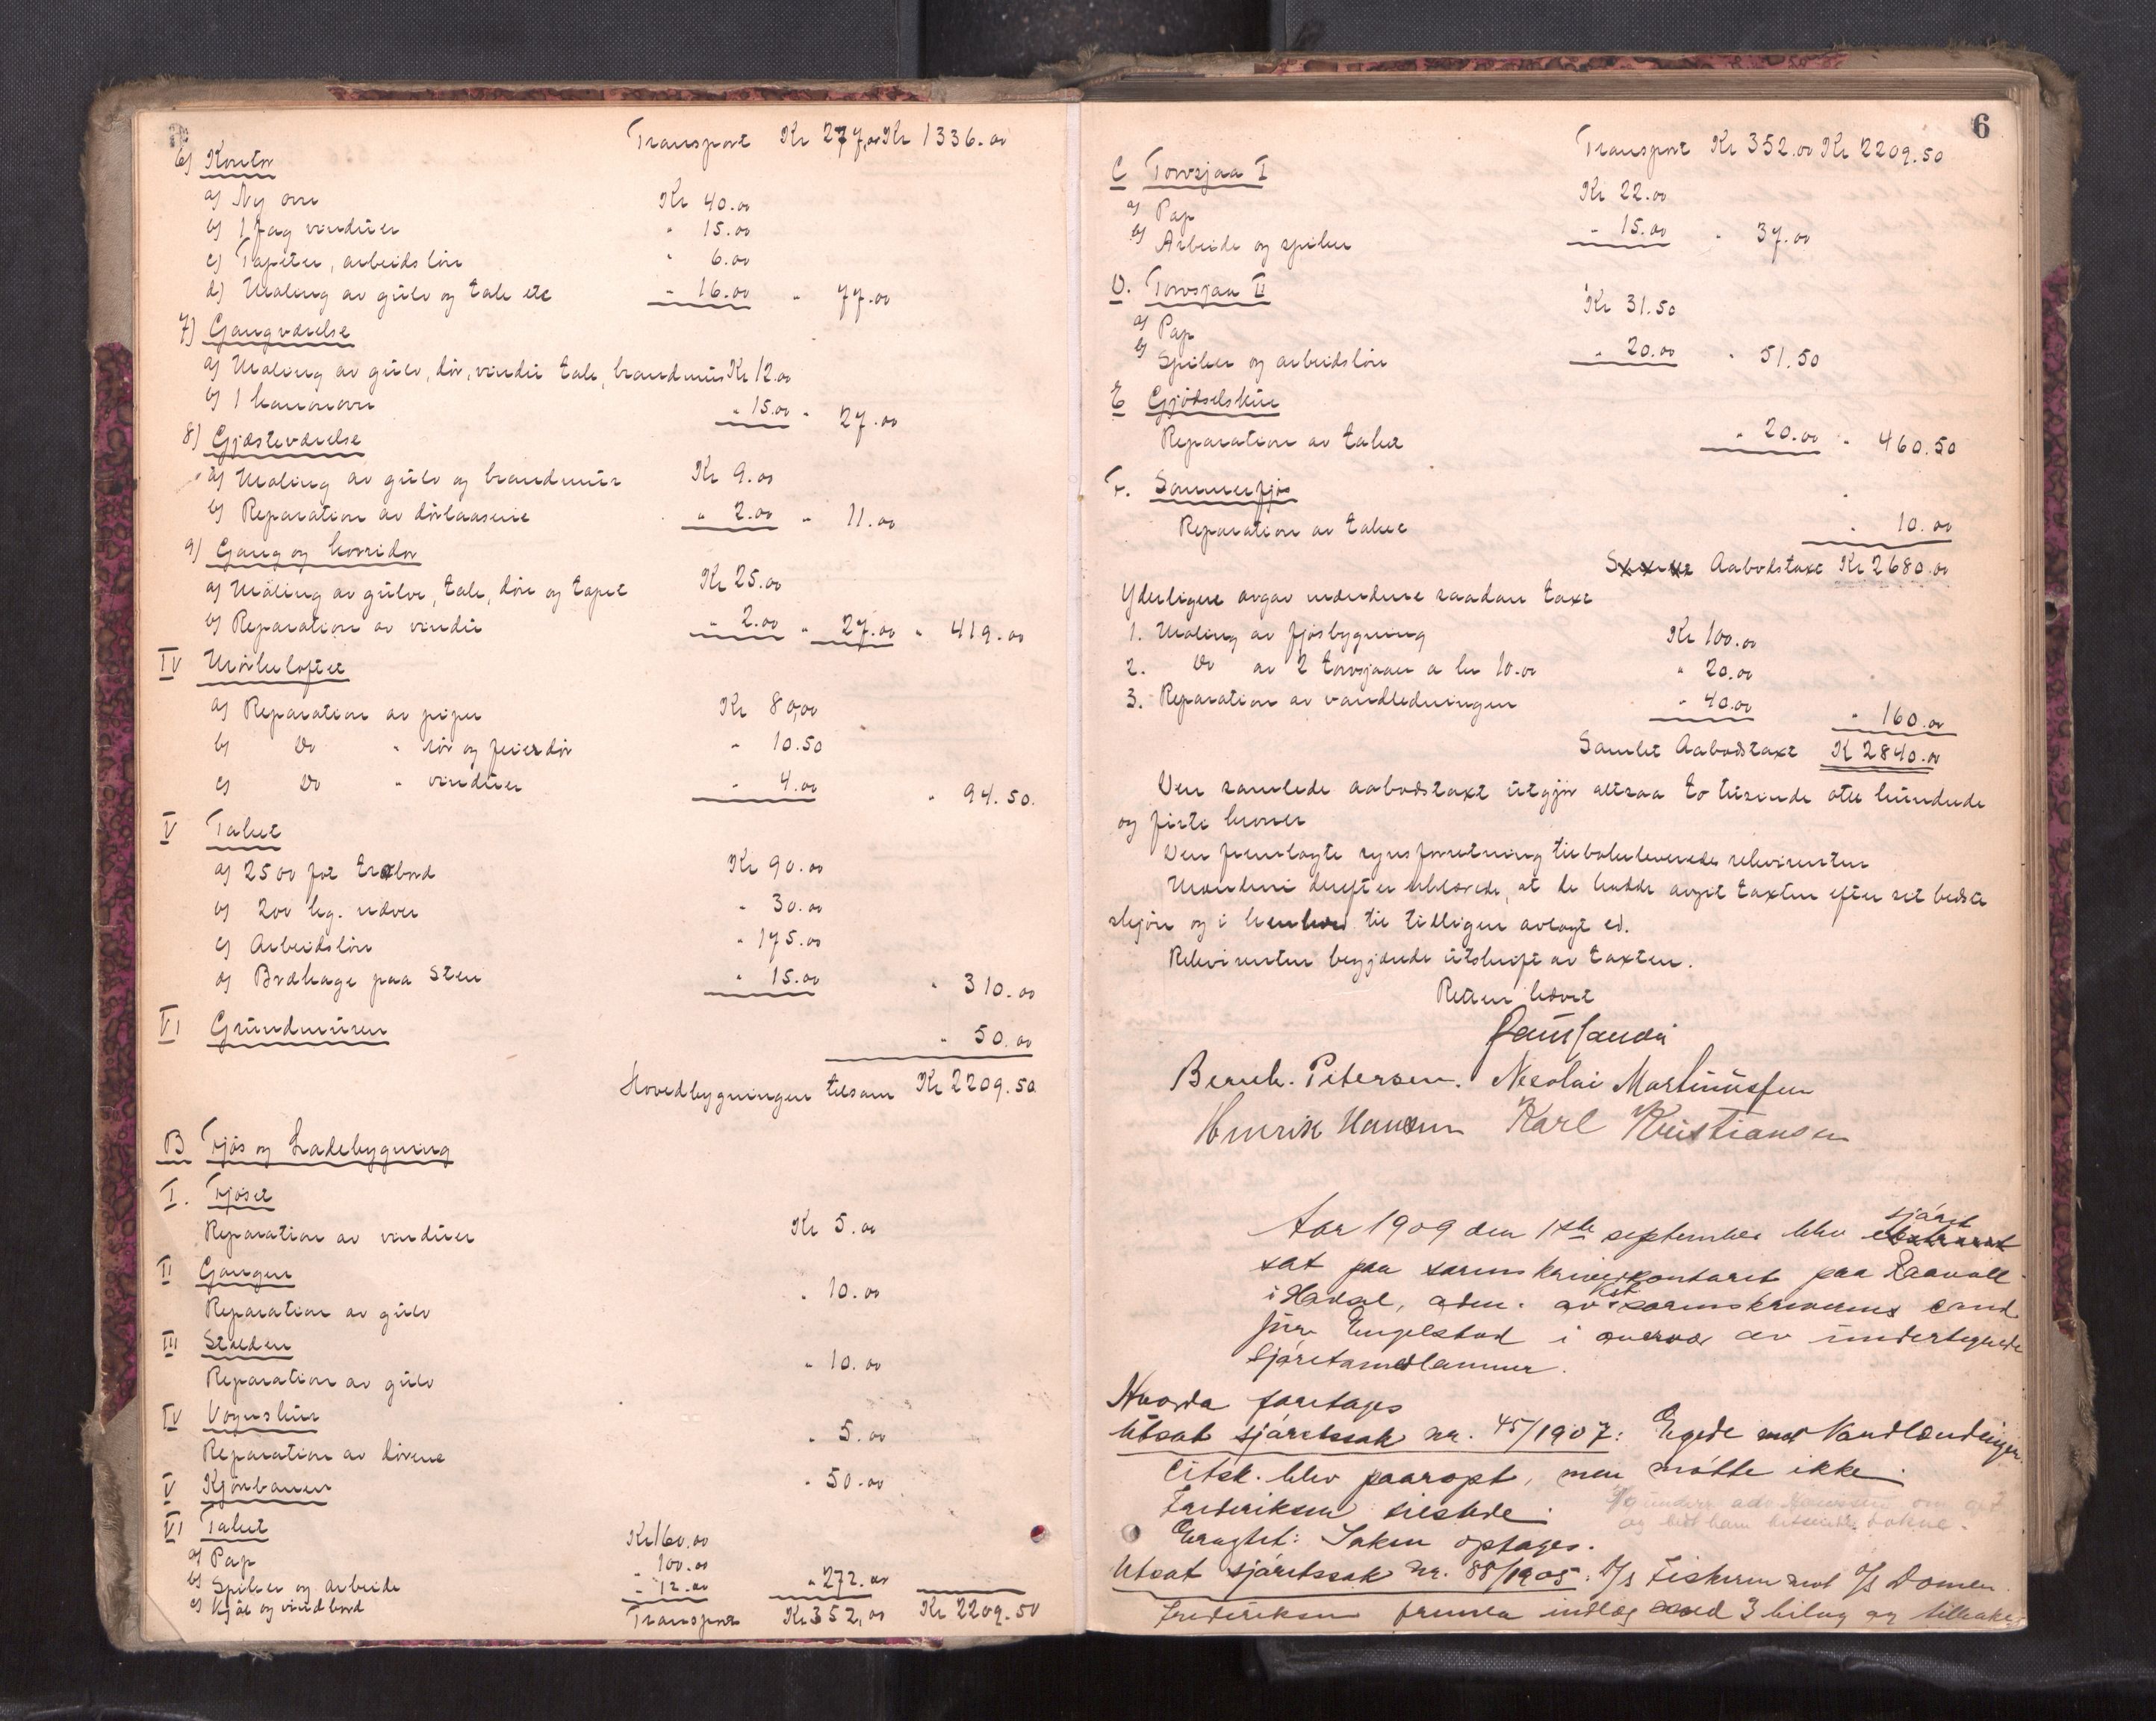 Transport Kr 277,00 Kr 1336.00
6) Kontor
a) Ny ovn Kr 40.00
b) 1 fag vinduer " 15.00
c) Tapeter, arbeidsløn " 6.00
d) Maling av gulv og tak etc " 16.00 " 77.00
7) Gangværelse
a) Maling av gulv, dør, vindu tak, brandmur Kr 12.00
b) 1 kanonovn " 15.00 " 27.00
8) Gjæsteværelse
a) Maling av gulv og brandmur Kr 9.00
b) Reparation av dørlaasene " 2.00 " 11.00
9) Gang og korridor
a) Maling av gulve, tak, døre og tapet Kr 25.00
b) Reparation av vindu " 2.00 " 27.00 " 419.00
IV Mørkeloftet
a) Reparation av piper Kr 80,00
b) Do " rør og feierdør " 10.50
c) Do " vinduer " 4.00 " 94.50.
V Taket
a) 2500 fot trobord Kr 90.00
b) 200 kg. næver " 30.00
c) Arbeidsløn " 175.00
d) Brækage paa Sten " 15.00 " 310.00
VI Grundmuren " 50.00
Hovedbygningen tilsam Kr 2209.50
B Fjøs og Ladebygning
I. Fjøset
Reparation av vinduer Kr 5.00
II Gangen
Reparation av gulv " 10.00
III Stalden
Reparation av gulv " 10.00
IV Vognskur
Reparation av dørene " 5.00
V Kjørbanen " 50.00
VI Taket
a) Pap Kr 160.00
b) Spiker og arbeide " 100.00
c) Kjøl og vindbord " 12.00 " 272.00
Transport Kr 352,00 Kr 2209.50
6
Transport Kr 352.00 Kr 2209.50
C Torvsjaa I
a) Pap Kr 22.00
b) Arbeide og spiker " 15.00 " 37.00
D. Torvsjaa II
a) Pap Kr 31.50
b) Spiker og arbeidsløn " 20.00 " 51.50
E Gjødselskur
Reparation av taket " 20.00 " 460.50
F. Sommerfjøs
Reparation av taket " 10.00
Aabodstaxt Kr 2680.00
Yderligere avgav mændene saadan taxt
1. Maling av fjøsbygning Kr 100.00
2. Do av 2 torvsjaaer a kr 10.00 " 20.00
3. Reparation av vandledningen " 40.00 " 160.00
Samlet Aabodstaxt K 2840.00
Den samlede aabodstaxt utgjør altsaa to tusinde otte hundrede
og firti kroner
Den fremlagte synsforretning tilbakeleveredes rekvirenten
Mændene derefter erklærede, at de hadde avgit taxten efter sit bedste
skjøn og i henhold til tidligere avlagt ed.
Rekvirenten begjærede utskrift av taxten.
Retten hævet
Bernh. Petersen. Nicolai Martinussen
Henrik Hansen Karl Kristiansen
Aar 1909 den 1ste september blev sjøret
sat paa sorenskriverkontoret paa Raavoll
i Hadsel, adm. av kst. sorenskriverens cand.
jur. Engelstad i overvær av undertegnede
Sjøretsmedlemmer.
Hvorda foretages
Utsat sjøretssak nr. 45/1907: Egede mot Vandlændinger.
Citsk. blev paaropt, men møtte ikke.
Frederiksen tilstede.
Eragtet: Saken optages.
Utsat sjøretssak nr. 88/1905: A/s Fiskeren mot A/s Domen.
Frederiksen fremla indlæg med 3 bilag og tilbake-